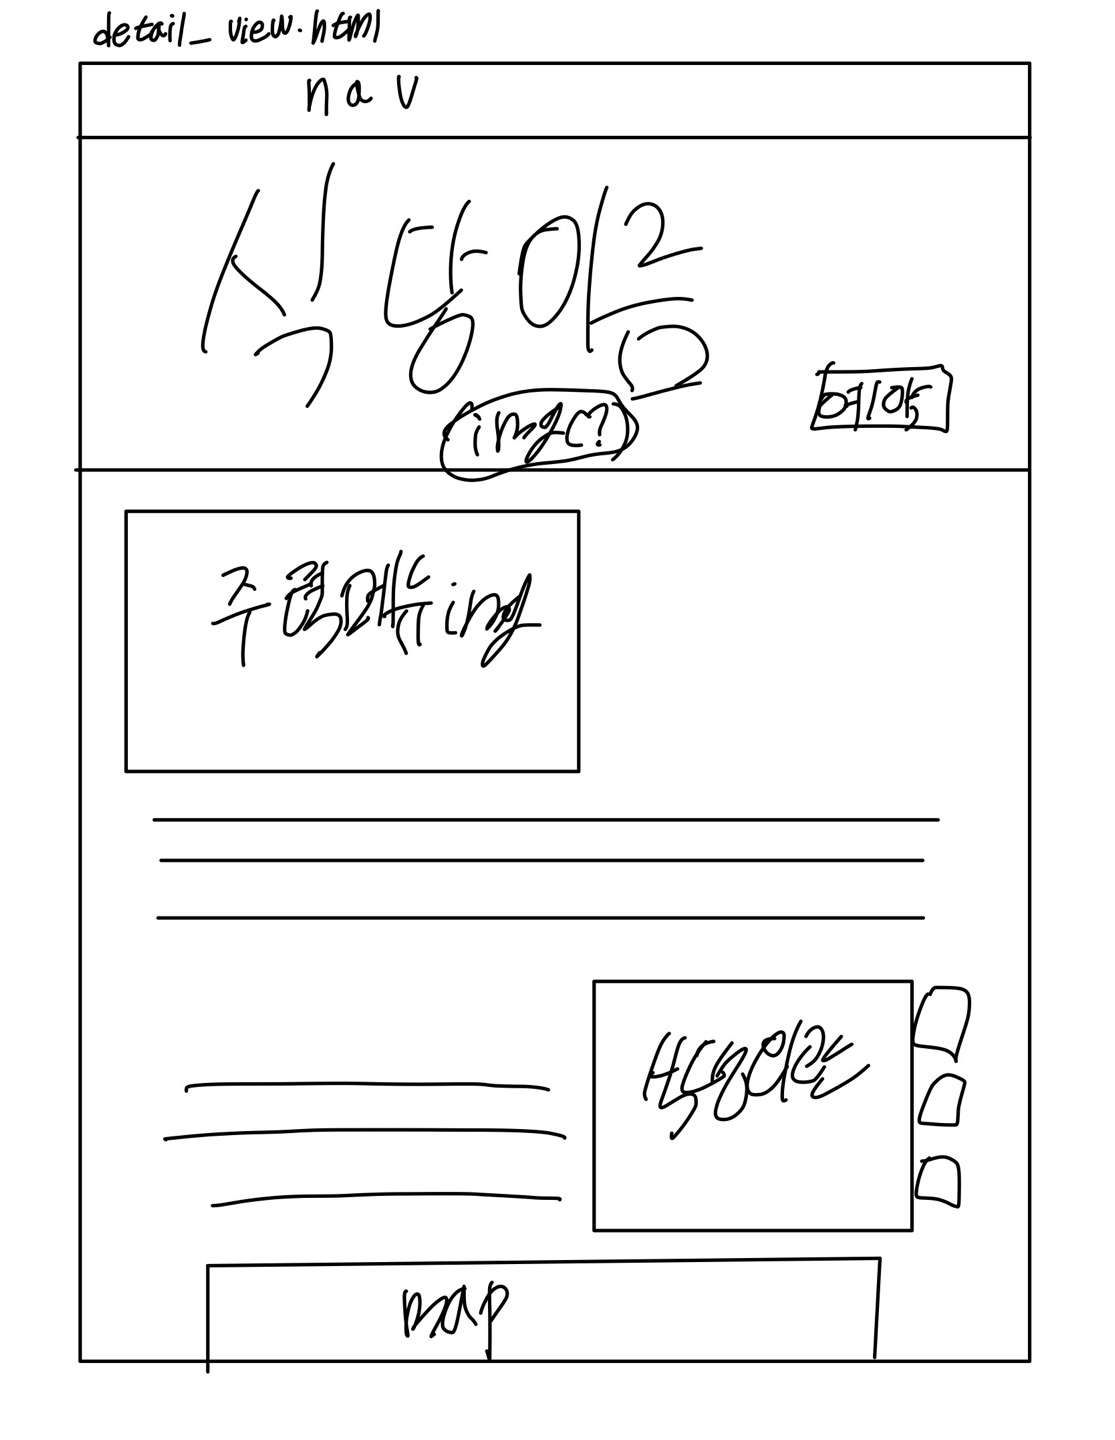 detail_view.html
nav
식당이름
img(?)
예약
주력메뉴img
map